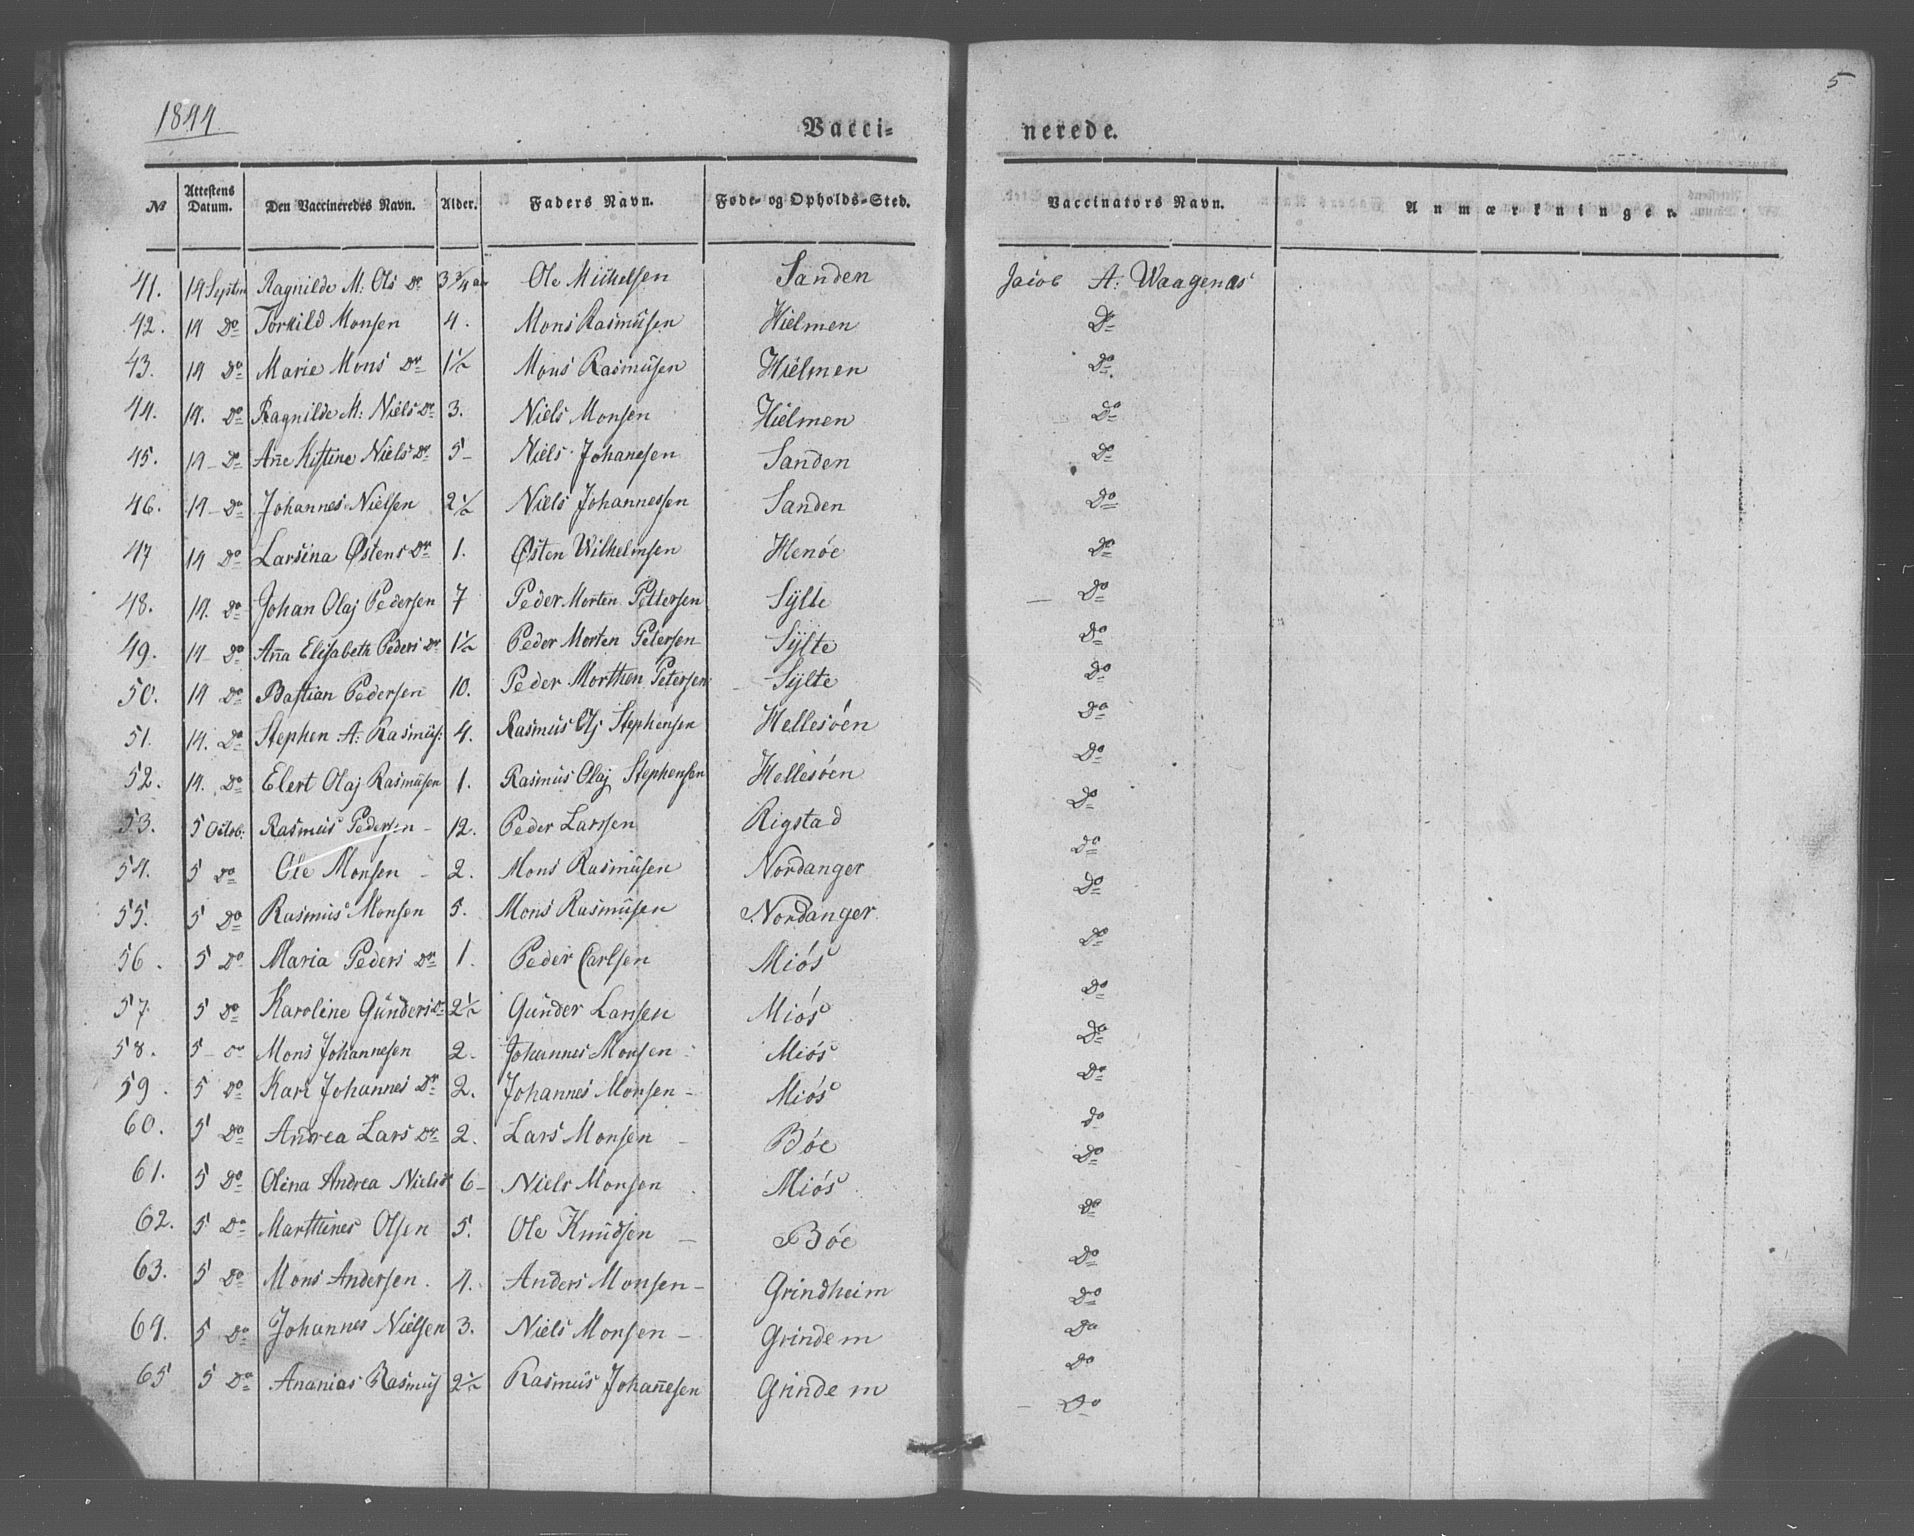 1844
5
Vacci- nerede.
No Attestens Datum. Den Vaccineredes Navn. Alder. Faders Navn. Føde- og Opholds-Sted. Vaccinators Navn. Anmærkninger.
41. 14 Septem Ragnilde M: Ols Dr 3 3/4 aar Ole Michelsen Sanden Jacob A: Waagenæs
42. 14 Do Torkild Monsen 4. Mons Rasmusen Hielmen Do
43. 14 Do Marie Mons Dr 1 1/2 Mons Rasmusen Hielmen Do
44. 14. Do Ragnilde M: Niels Dr 3. Niels Monsen Hielmen Do
45. 14 - Do Añe Kistine Niels Dr 5 - Niels Johanesen Sanden Do
46. 14 - Do Johannes Nielsen 2 1/2 Niels Johannessen Sanden Do
47 14 Do Larsina Østens Dr 1. Østen Wilhelmsen Henöe Do
48. 14. Do Johan Olaj Pedersen 7 Peder Morten Pettersen Sÿlte - Do
49. 14 - Do Aña Elisabeth Peders Dr 1 1/2 Peder Morten Petersen Sÿlte Do
50. 14 Do Bastian Pedersen 10. Peder Morthen Petersen Sÿlte Do
51. 14. Do Stephen A: Rasmus: 4. Rasmus Olj Stephensen Hellesöen Do
52. 14. Do Elert Olaj Rasmusen 1. Rasmus Olaj Stephensen Hellesöen Do
53. 5 Octob. Rasmus Pedersen - 12. Peder Larssen Rigstad Do
54. 5 Do Ole Monsen - 2. Mons Rasmusen Nordanger Do
55. 5 Do Rasmus Monsen 5. Mons Rasmusen Nordanger Do
56. 5 Do Maria Peders Dr 1. Peder Carlsen Miös Do
57. 5 Do Karoline Gunders Dr 2 1/2 Gunder Larsen Miös Do
58. 5 - Do Mons Johannesen 2. Johannes Monsen Miös Do
59. 5 Do Kari Johannes Dr 2. Johannes Monsen - Miös Do
60. 5 Do Andrea Lars Dr 2. Lars Monsen - Böe Do
61. 5 Do Olina Andrea Niels 6 - Niels Monsen Miös Do
62. 5 Do Marthines Olsen 5. Ole Knudsen - Böe Do
63. 5 Do Mons Andersen. 4. Anders Monsen - Grindheim Do
64. 5 Do Johannes Nielsen 3. Niels Monsen - Grindem Do
65 5 Do Ananias Rasmus 2 1/2 Rasmus Johañesen Grindem Do
- Do